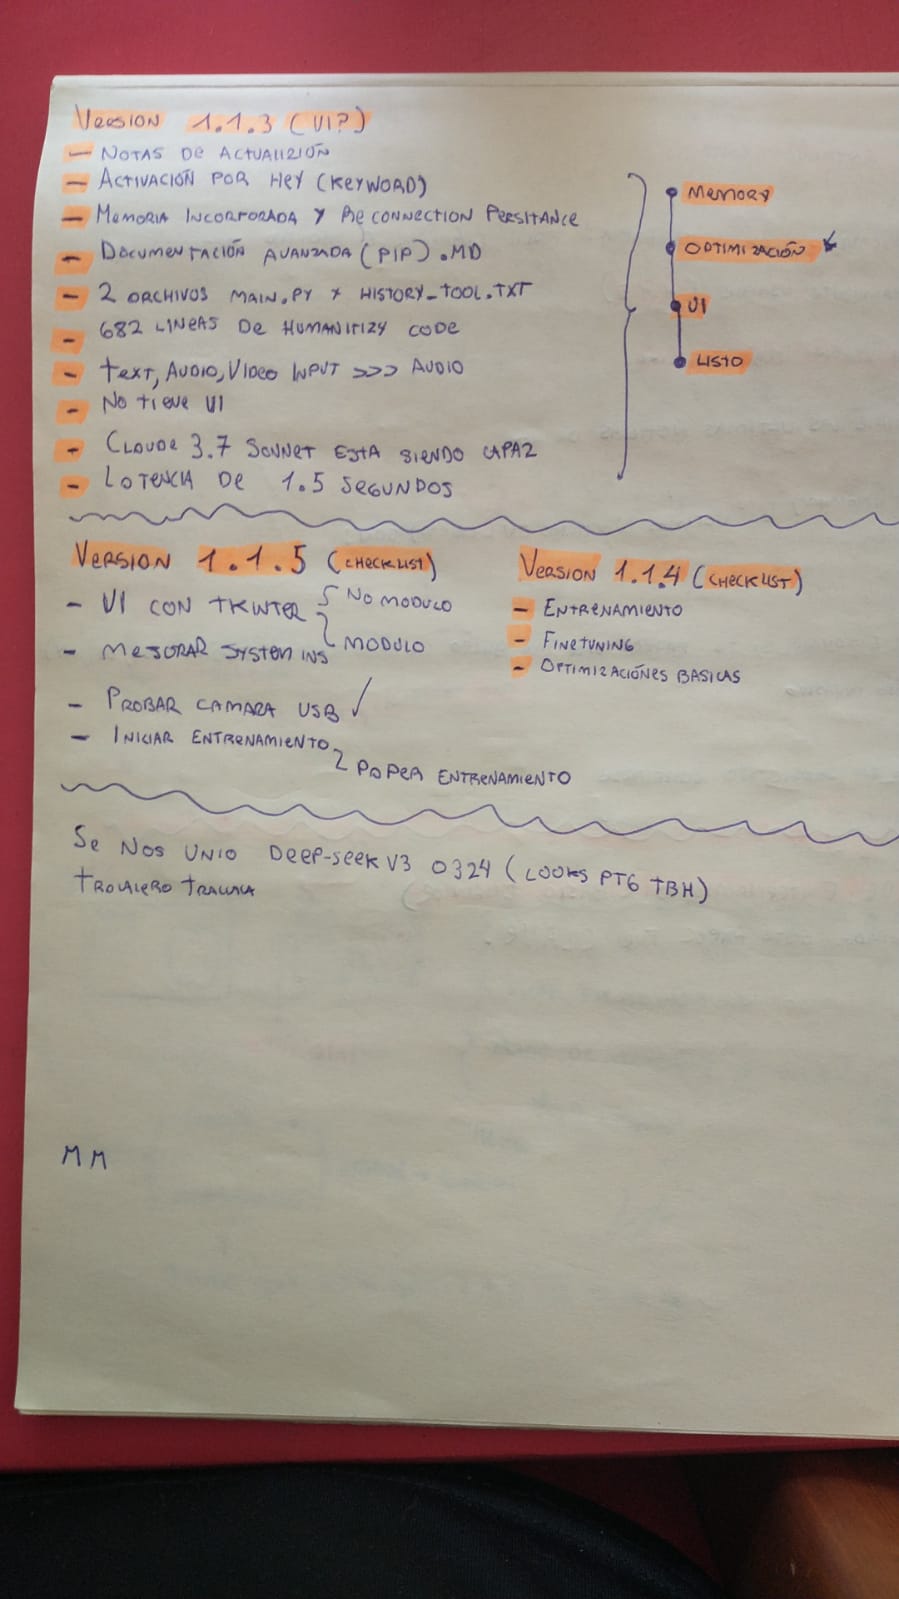 Version 1.1.3 (UI?)
- NOTAS DE ACTUALIZIÓN
- ACTIVACIÓN POR HEY (KEYWORD)
- MEMORIA INCORPORADA Y RECONNECTION PERSITANCE
- DOCUMENTACIÓN AVANZADA (PIP) .MD
- 2 ARCHIVOS MAIN.PY + HISTORY_TOOL.TXT
- 682 LINEAS DE HUMANITIZY CODE
- TEXT, AUDIO, VIDEO INPUT >>> AUDIO
- NO TIENE UI
- CLAUDE 3.7 SONNET ESTA SIENDO CAPAZ
- LATENCIA DE 1.5 SEGUNDOS
MEMORY
OPTIMIZACIÓN
UI
LISTO
VERSION 1.1.5 (CHECKLIST)
- UI CON TKINTER NO MODULO
MODULO
- MEJORAR SYSTEM INS
- PROBAR CAMARA USB ✓
- INICIAR ENTRENAMIENTO
PAPER ENTRENAMIENTO
VERSION 1.1.4 (CHECKLIST)
- ENTRENAMIENTO
- FINETUNING
- OPTIMIZACIÓNES BASICAS
SE NOS UNIO DEEP-SEEK V3 0324 (LOOKS PT6 TBH)
MM